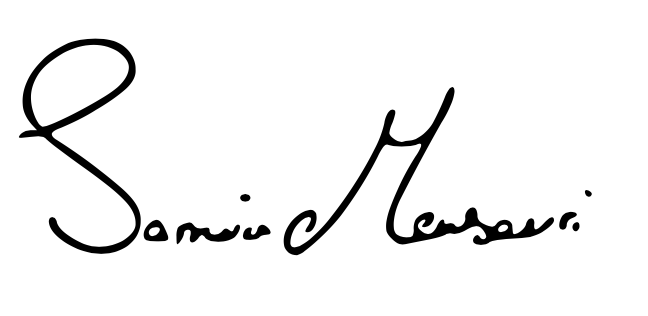 Samira Mansouri